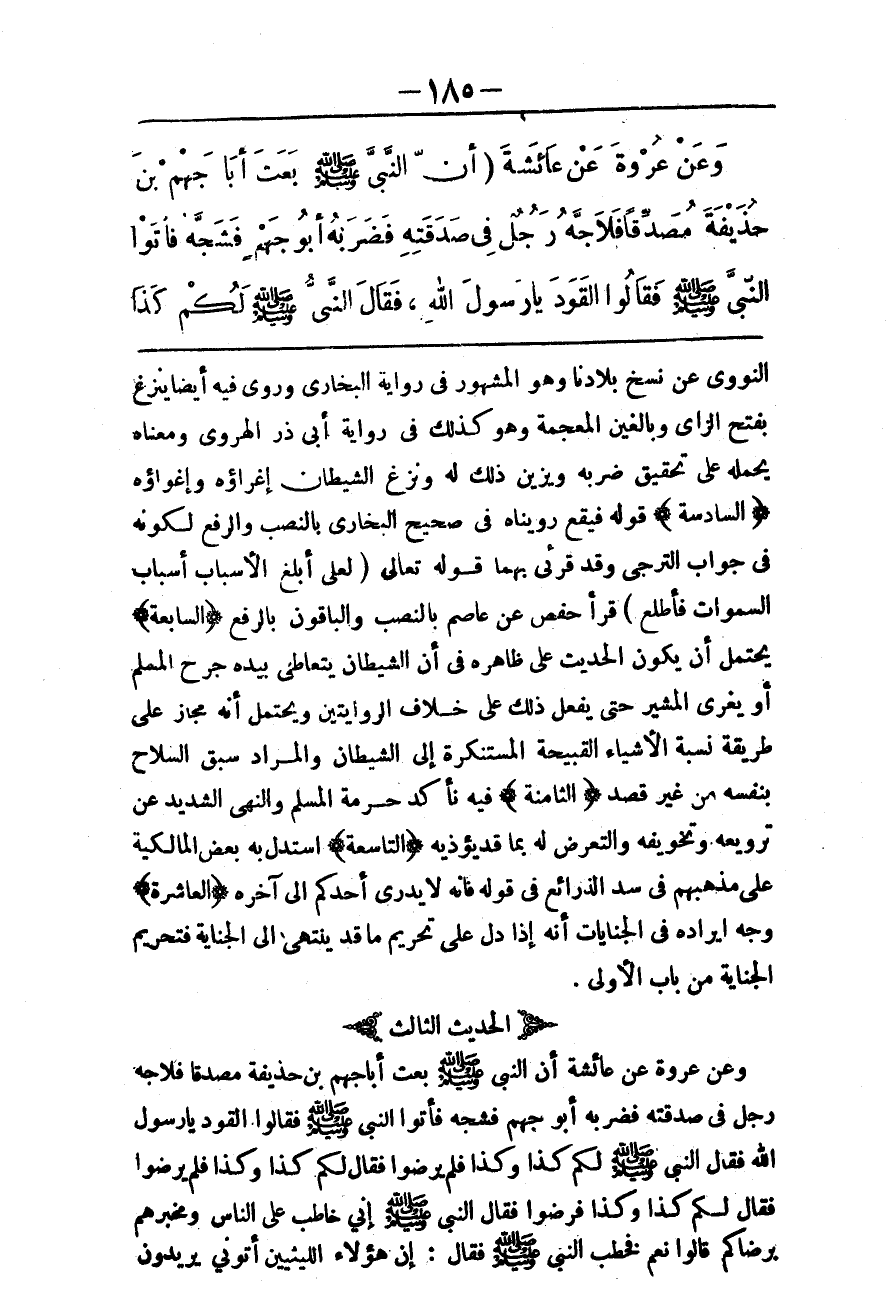 — ١٨٥ —
وَعَنْ عُرْوَةَ عَنْ عَائَشَةَ ( أن ّ النَّبىَّ ﷺ بَعَتَ أَبَا جَهْمْ بْنَ
حُذَيْفَةَ مُصَدِّقاً فَلَاجَّهُ رَجُلٌ فِى صَدَقَتِهِ فَضَرَبَهُ أَبُو جَهْمٍ فَشَجَّهُ فأتَوْا
النّبىَّ ﷺ فَقَالُوا القَوَدَ يارَسولَ اللهِ ، فَقَالَ النَّبىُّ ﷺ لَكُمْ كَذَا
النووى عن نسخ بلادنا وهو المشهور فى رواية البخارى وروى فيه أيضا ينزغ
بفتح الزاى وبالغين المعجمة وهو كذلك فى رواية أبى ذر الهروى ومعناه
يحمله على تحقيق ضربه ويزين ذلك له ونزغ الشيطان إغراؤه وإغواؤه
﴿ السادسة ﴾ قوله فيقع رويناه فى صحيح البخارى بالنصب والرفع لكونه
فى جواب الترجى وقد قرئى بهما قوله تعالى ( لعلى أبلغ الأسباب أسباب
السموات فأطلع ) قرأ حفص عن عاصم بالنصب والباقون بالرفع ﴿السابعة﴾
يحتمل أن يكون الحديث على ظاهره فى أن الشيطان يتعاطى بيده جرح المسلم
أو يغرى المشير حتى يفعل ذلك على خلاف الروايتين ويحتمل أنه مجاز على
طريقة نسبة الأشياء القبيحة المستنكرة إلى الشيطان والمراد سبق السلاح
بنفسه من غير قصد ﴿ الثامنة ﴾ فيه تأكد حرمة المسلم والنهى الشديد عن
ترويعه وتخويفه والتعرض له بما قد يؤذيه ﴿التاسعة﴾ استدل به بعض المالكية
على مذهبهم فى سد الذرائع فى قوله فانه لا يدرى أحدكم الى آخره ﴿العاشرة﴾
وجه ايراده فى الجنايات أنه إذا دل على تحريم ما قد ينتهى الى الجناية فتحريم
الجناية من باب الأولى .
الحديث الثالث
وعن عروة عن عائشة أن النبى ﷺ بعت أباجهم بن حذيفة مصدقا فلاجه
رجل فى صدقته فضربه أبو جهم فشجه فأتوا النبي ﷺ فقالوا القود يارسول
الله فقال النبي ﷺ لكم كذا وكذا فلم يرضوا فقال لكم كذا وكذا فلم يرضوا
فقال لكم كذا وكذا فرضوا فقال النبي ﷺ إني خاطب على الناس ومخبرهم
برضاكم قالوا نعم فخطب النبي ﷺ فقال : إن هؤلاء الليثيين أتوني يريدون